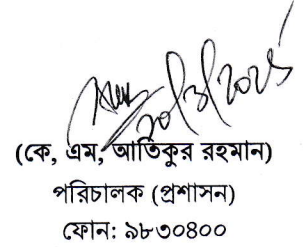 ২০/৩/২০২৫
(কে, এম, আতিকুর রহমান)
পরিচালক (প্রশাসন)
ফোন: ৯৮৩০৪০০